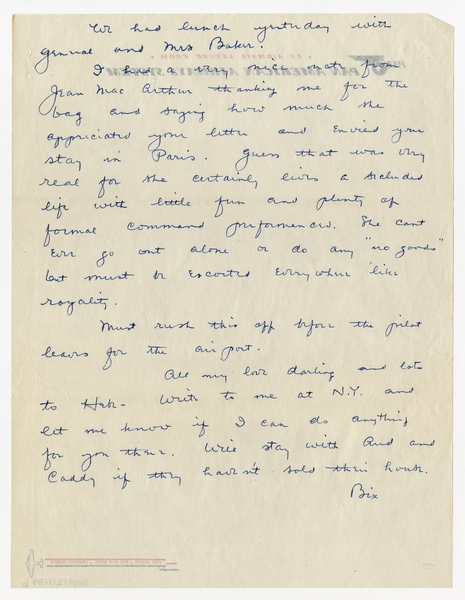 We had lunch yesterday with
General and Mrs Baker.
I had a very nice note from
Jean Mac Arthur thanking me for the
bag and saying how much she
appreciated your letter and envied your
stay in Paris. Guess that was very
real for she certainly lives a secluded
life with little fun and plenty of
formal command performances. She cant
ever go out alone or do any "no goods"
but must be escorted everywhere like
royality.
Must rush this off before the pilot
leaves for the airport.
All my love darling and lots
to Hub- Write to me at N.Y. and
let me know if I can do anything
for you there. We'll stay with and
Caddy if they haven't sold their house.
Bix